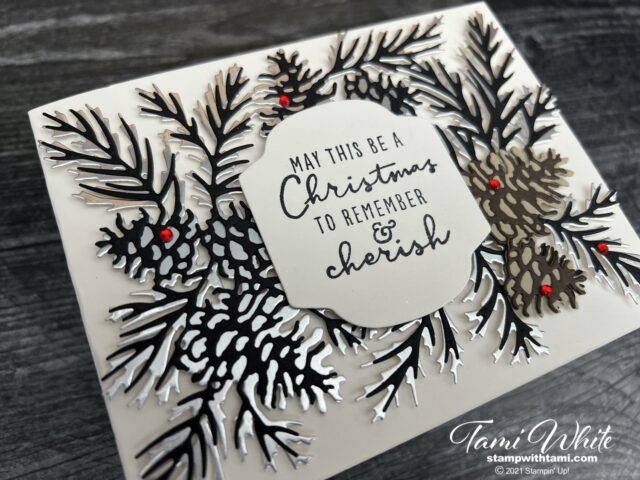 MAY THIS BE A
Christmas
TO REMEMBER
&
cherish
Tami White
stampwithtami.com
© 2021 Stampin' Up!